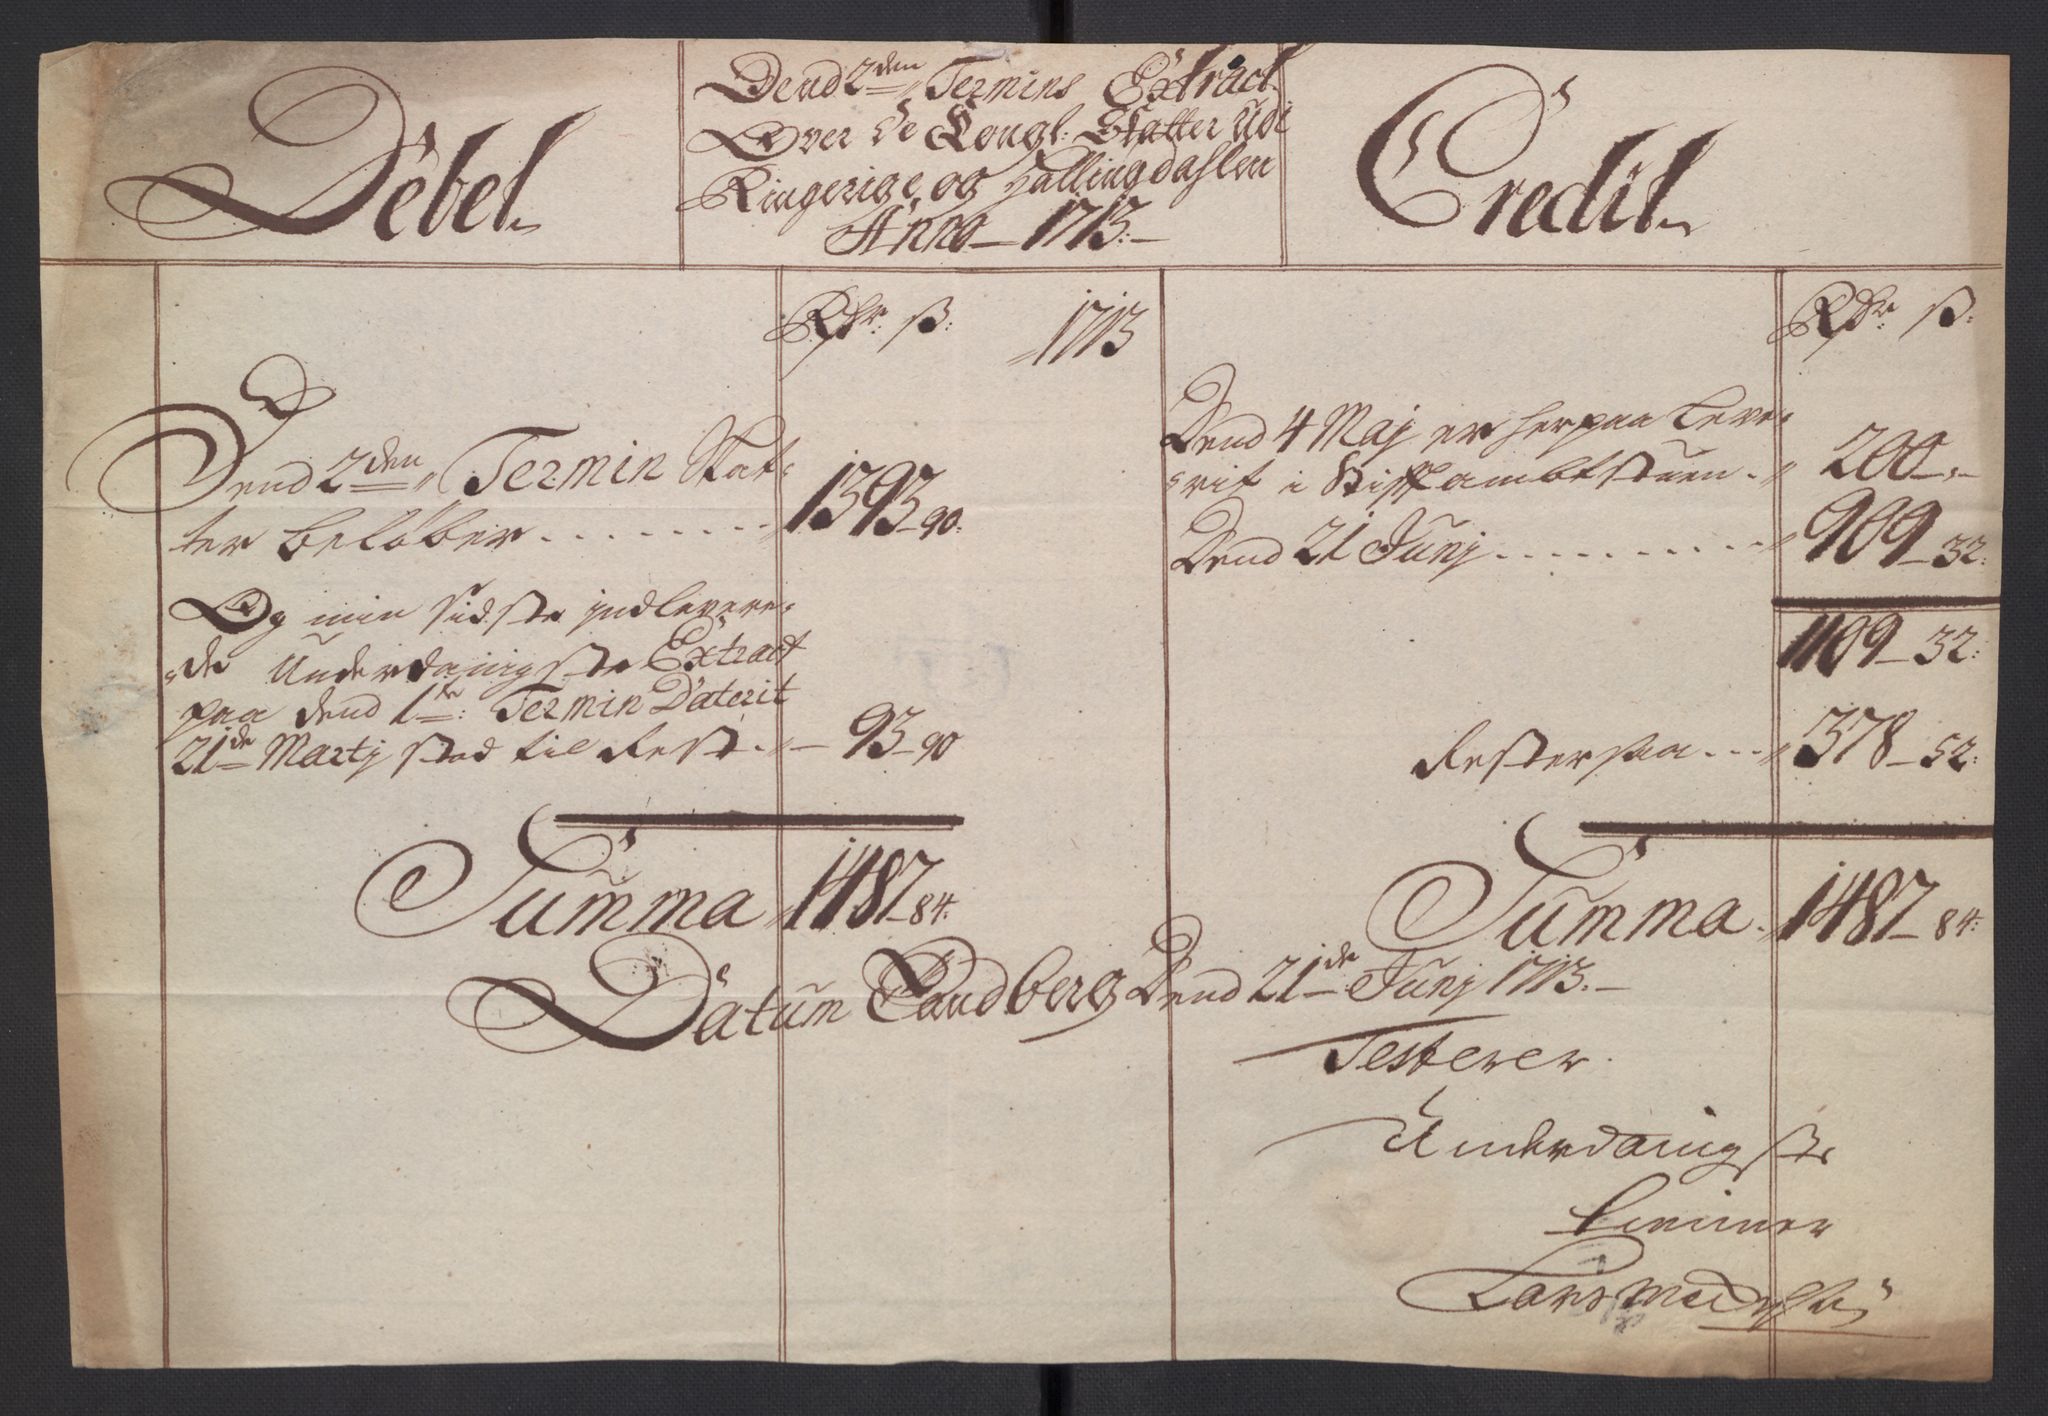 Debet
Dend 2den Termins Extract
Over de Kongl: Skatter Udi
Ringerige og Hallingdahlen
Anno 1713.
Credit
Rdr ß:
1713
Rdr ß:
Dend 2den Termin Skat-
ter beløber . . . . . . . 1393 - 90:
Og min Sidste indlevere-
de Underdanigste Extract
paa dend 1te: Termin Daterit
21de Martij stod til Rest - 93 - 90
Summa 1487 - 84.
Dend 4 Maj er herpaa leve-
rit i Stiftambtstuen . 200 -
Dend 21 Junj . . . . . . . . . 909 - 32:
1109 - 32:
Resterer saa . . . 378 - 52:
Summa . 1487 - 84:
Datum Sandberg Dend 21de Junj 1713.
Testerer
Underdanigste
tienner
Lars